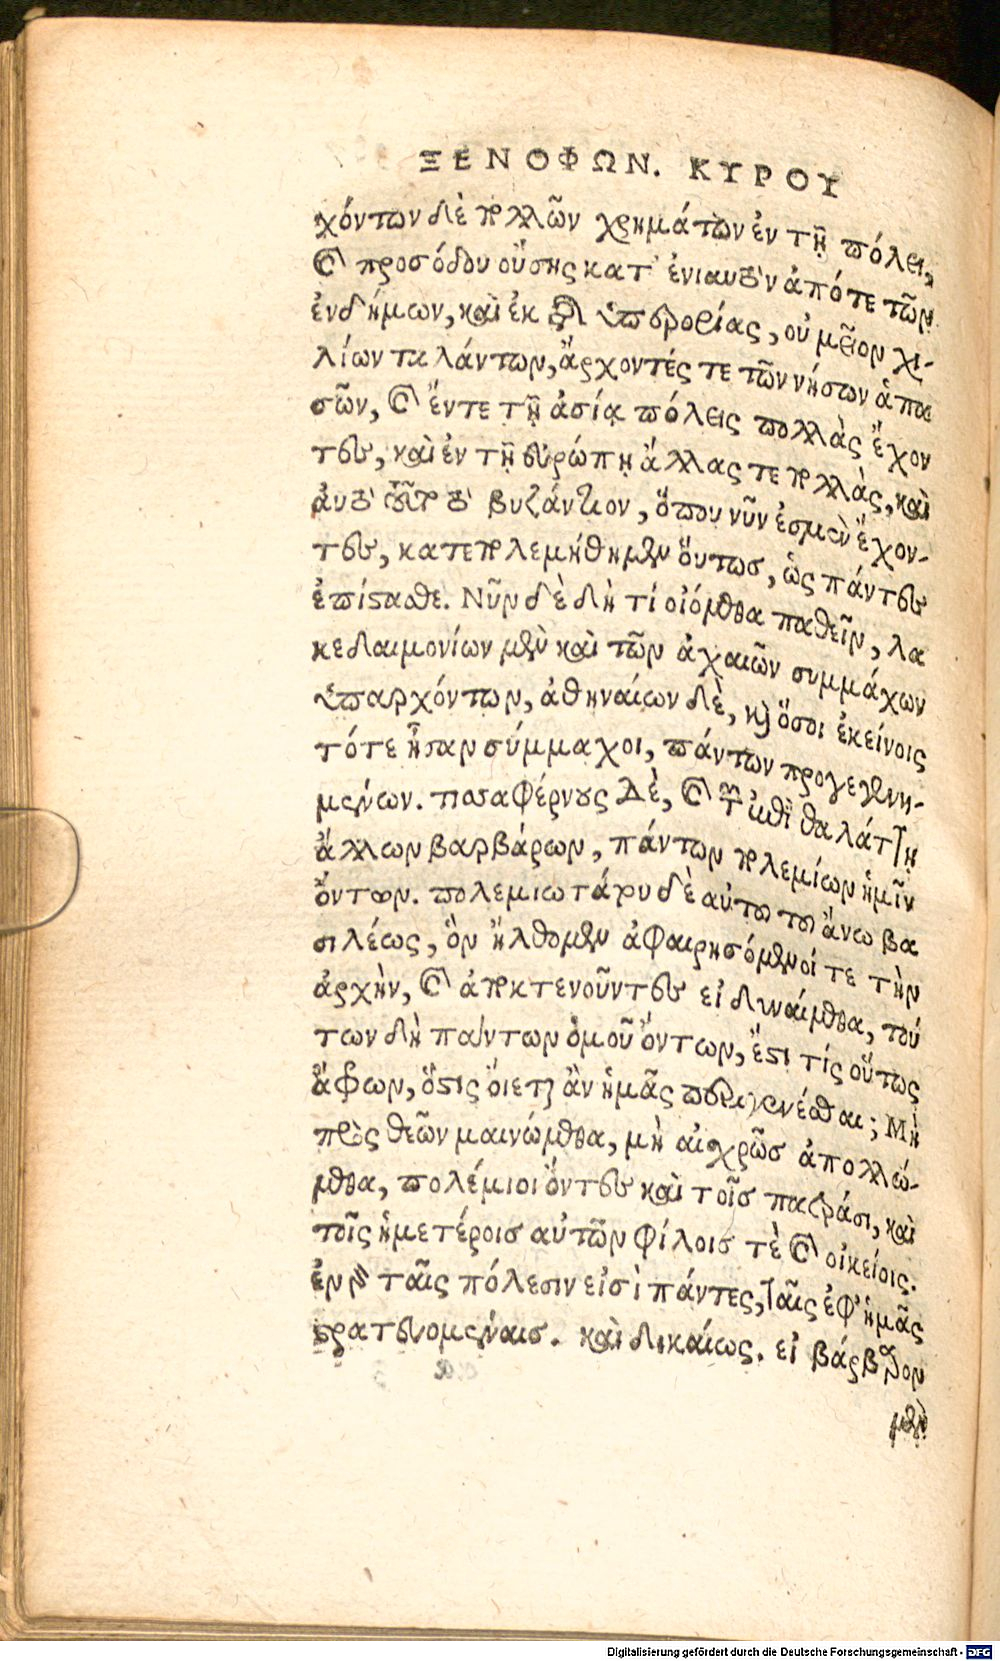 ΞΕΝΟΦΩΝ. ΚΥΡΟΥ
χόντων δὲ πολλῶν χρημάτων ἐν τῇ πόλει,
καὶ προσόδου οὔσης κατ' ἐνιαυτὸν ἀπό τε τῶν
ἐνδήμων, καὶ ἐκ τῆς ὑπερορίας, οὐ μεῖον χι-
λίων ταλάντων, ἄρχοντές τε τῶν νήσων ἁπα
σῶν, καὶ ἔν τε τῇ ἀσίᾳ πόλεις πολλὰς ἔχον
τες, καὶ ἐν τῇ εὐρώπῃ ἄλλας τε πολλὰς, καὶ
αὐτὸ τοῦτο τὸ βυζάντιον, ὅπου νῦν ἐσμὲν ἔχον-
τες, κατεπολεμήθημεν ὅυτωσ, ὡς πάντες
ἐπίστασθε. Νῦν δὲ δὴ τί οἰόμεθα παθεῖν, λα
κεδαιμονίων μὲν καὶ τῶν ἀχαιῶν συμμάχων
ὑπαρχόντων, ἀθηναίων δὲ, καὶ ὅσοι ἐκείνοις
τότε ἦσαν σύμμαχοι, πάντων προγεγενη-
μένων. τισσαφέρνους δὲ, καὶ τῶν ἐπὶ θαλάττῃ
ἄλλων βαρβάρων, πάντων πολεμίων ἡμῖν
ὄντων. πολεμιωτάτου δὲ αὐτοῦ τοῦ ἄνω βα
σιλέως, ὃν ἤλθομεν ἀφαιρησόμενοί τε τὴν
ἀρχὴν, καὶ ἀποκτενοῦντες εἰ δυναίμεθα, τού
των δὴ πάντων ὁμοῦ ὄντων, ἔστι τίς οὕτως
ἄφρων, ὅστις ὄιεται ἂν ἡμᾶς περιγενέσθαι; Μὴ
πρὸς θεῶν μαινώμεθα, μὴ αἰσχρῶσ ἀπολλώ-
μεθα, πολέμιοι ὄντες καὶ τοῖσ πατράσι, καὶ
τοῖς ἡμετέροισ αὐτῶν φίλοισ τὲ καὶ οἰκείοις.
ἐν γὰρ ταῖς πόλεσιν εἰσὶ πάντες, ταῖς ἐφ' ἡμᾶς
στρατευομέναισ. καὶ δικαίως. εἰ βάρβαρον
μὲν
Digitalisierung gefördert durch die Deutsche Forschungsgemeinschaft - DFG